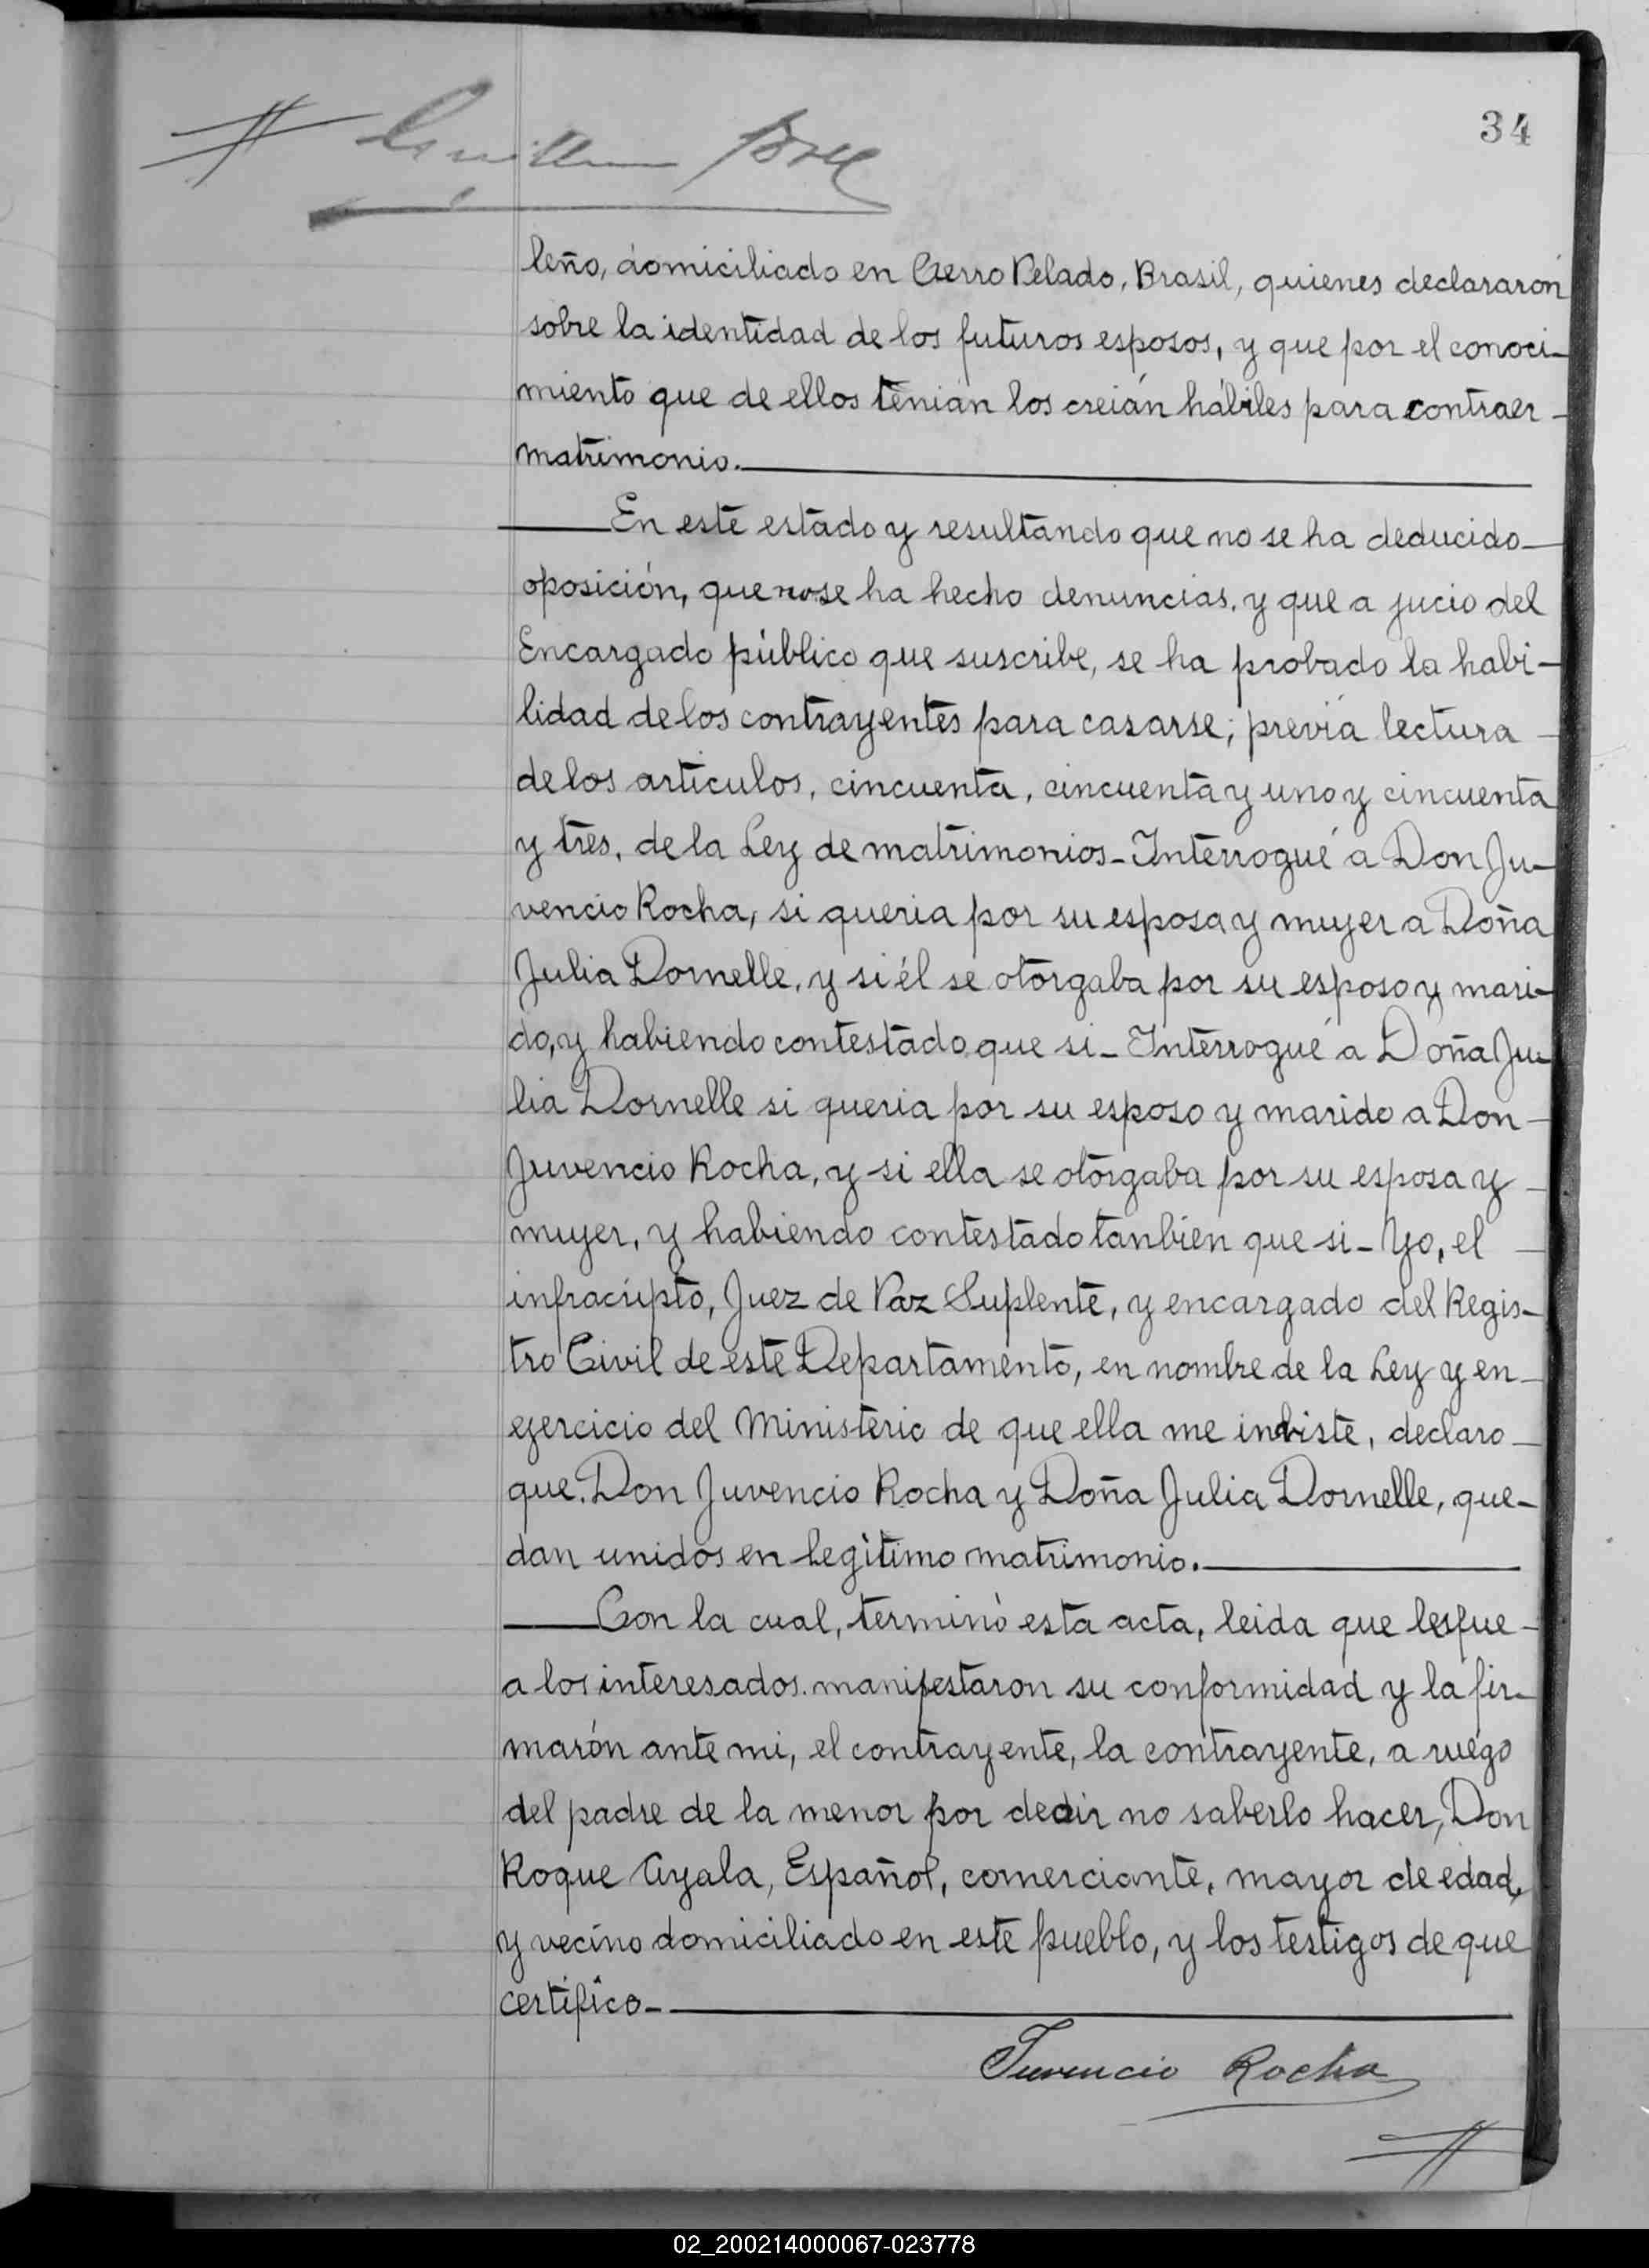 34
leño, domiciliado en Cerro Pelado, Brasil, quienes declararón
sobre la identidad de los futuros esposos, y que por el conoci-
miento que de ellos tenián los creián hábiles para contraer -
matrimonio.
En este estado y resultando que no se ha deducido
oposición, que no se ha hecho denuncias, y que a jucio del
Encargado público que suscribe, se ha probado la habi-
lidad de los contrayentes para casarse; previa lectura
de los artículos, cincuenta, cincuenta y uno y cincuenta
y tres, de la Ley de matrimonios - Interrogué a Don Ju-
vencio Rocha, si queria por su esposa y mujer a Doña
Julia Dornelle, y si él se otorgaba por su esposo y mari-
do, y habiendo contestado que si - Interrogué a Doña Ju-
lia Dornelle si queria por su esposo y marido a Don -
Juvencio Rocha, y si ella se otorgaba por su esposa y -
mujer, y habiendo contestado tanbién que si - Yo, el -
infracripto, Juez de Paz Suplente, y encargado del Regis-
tro Civil de este Departamento, en nombre de la Ley y en -
ejercicio del Ministerio de que ella me inviste, declaro -
que. Don Juvencio Rocha y Doña Julia Dornelle, que-
dan unidos en legítimo matrimonio.
Con la cual, terminó esta acta, leida que les fue -
a los interesados. manifestaron su conformidad y la fir-
marón ante mi, el contrayente, la contrayente, a ruego
del padre de la menor por decir no saberlo hacer, Don
Roque Ayala, Español, comerciante, mayor de edad,
y vecino domiciliado en este pueblo, y los testigos de que
certifico -
Juvencio Rocha
02_200214000067-023778